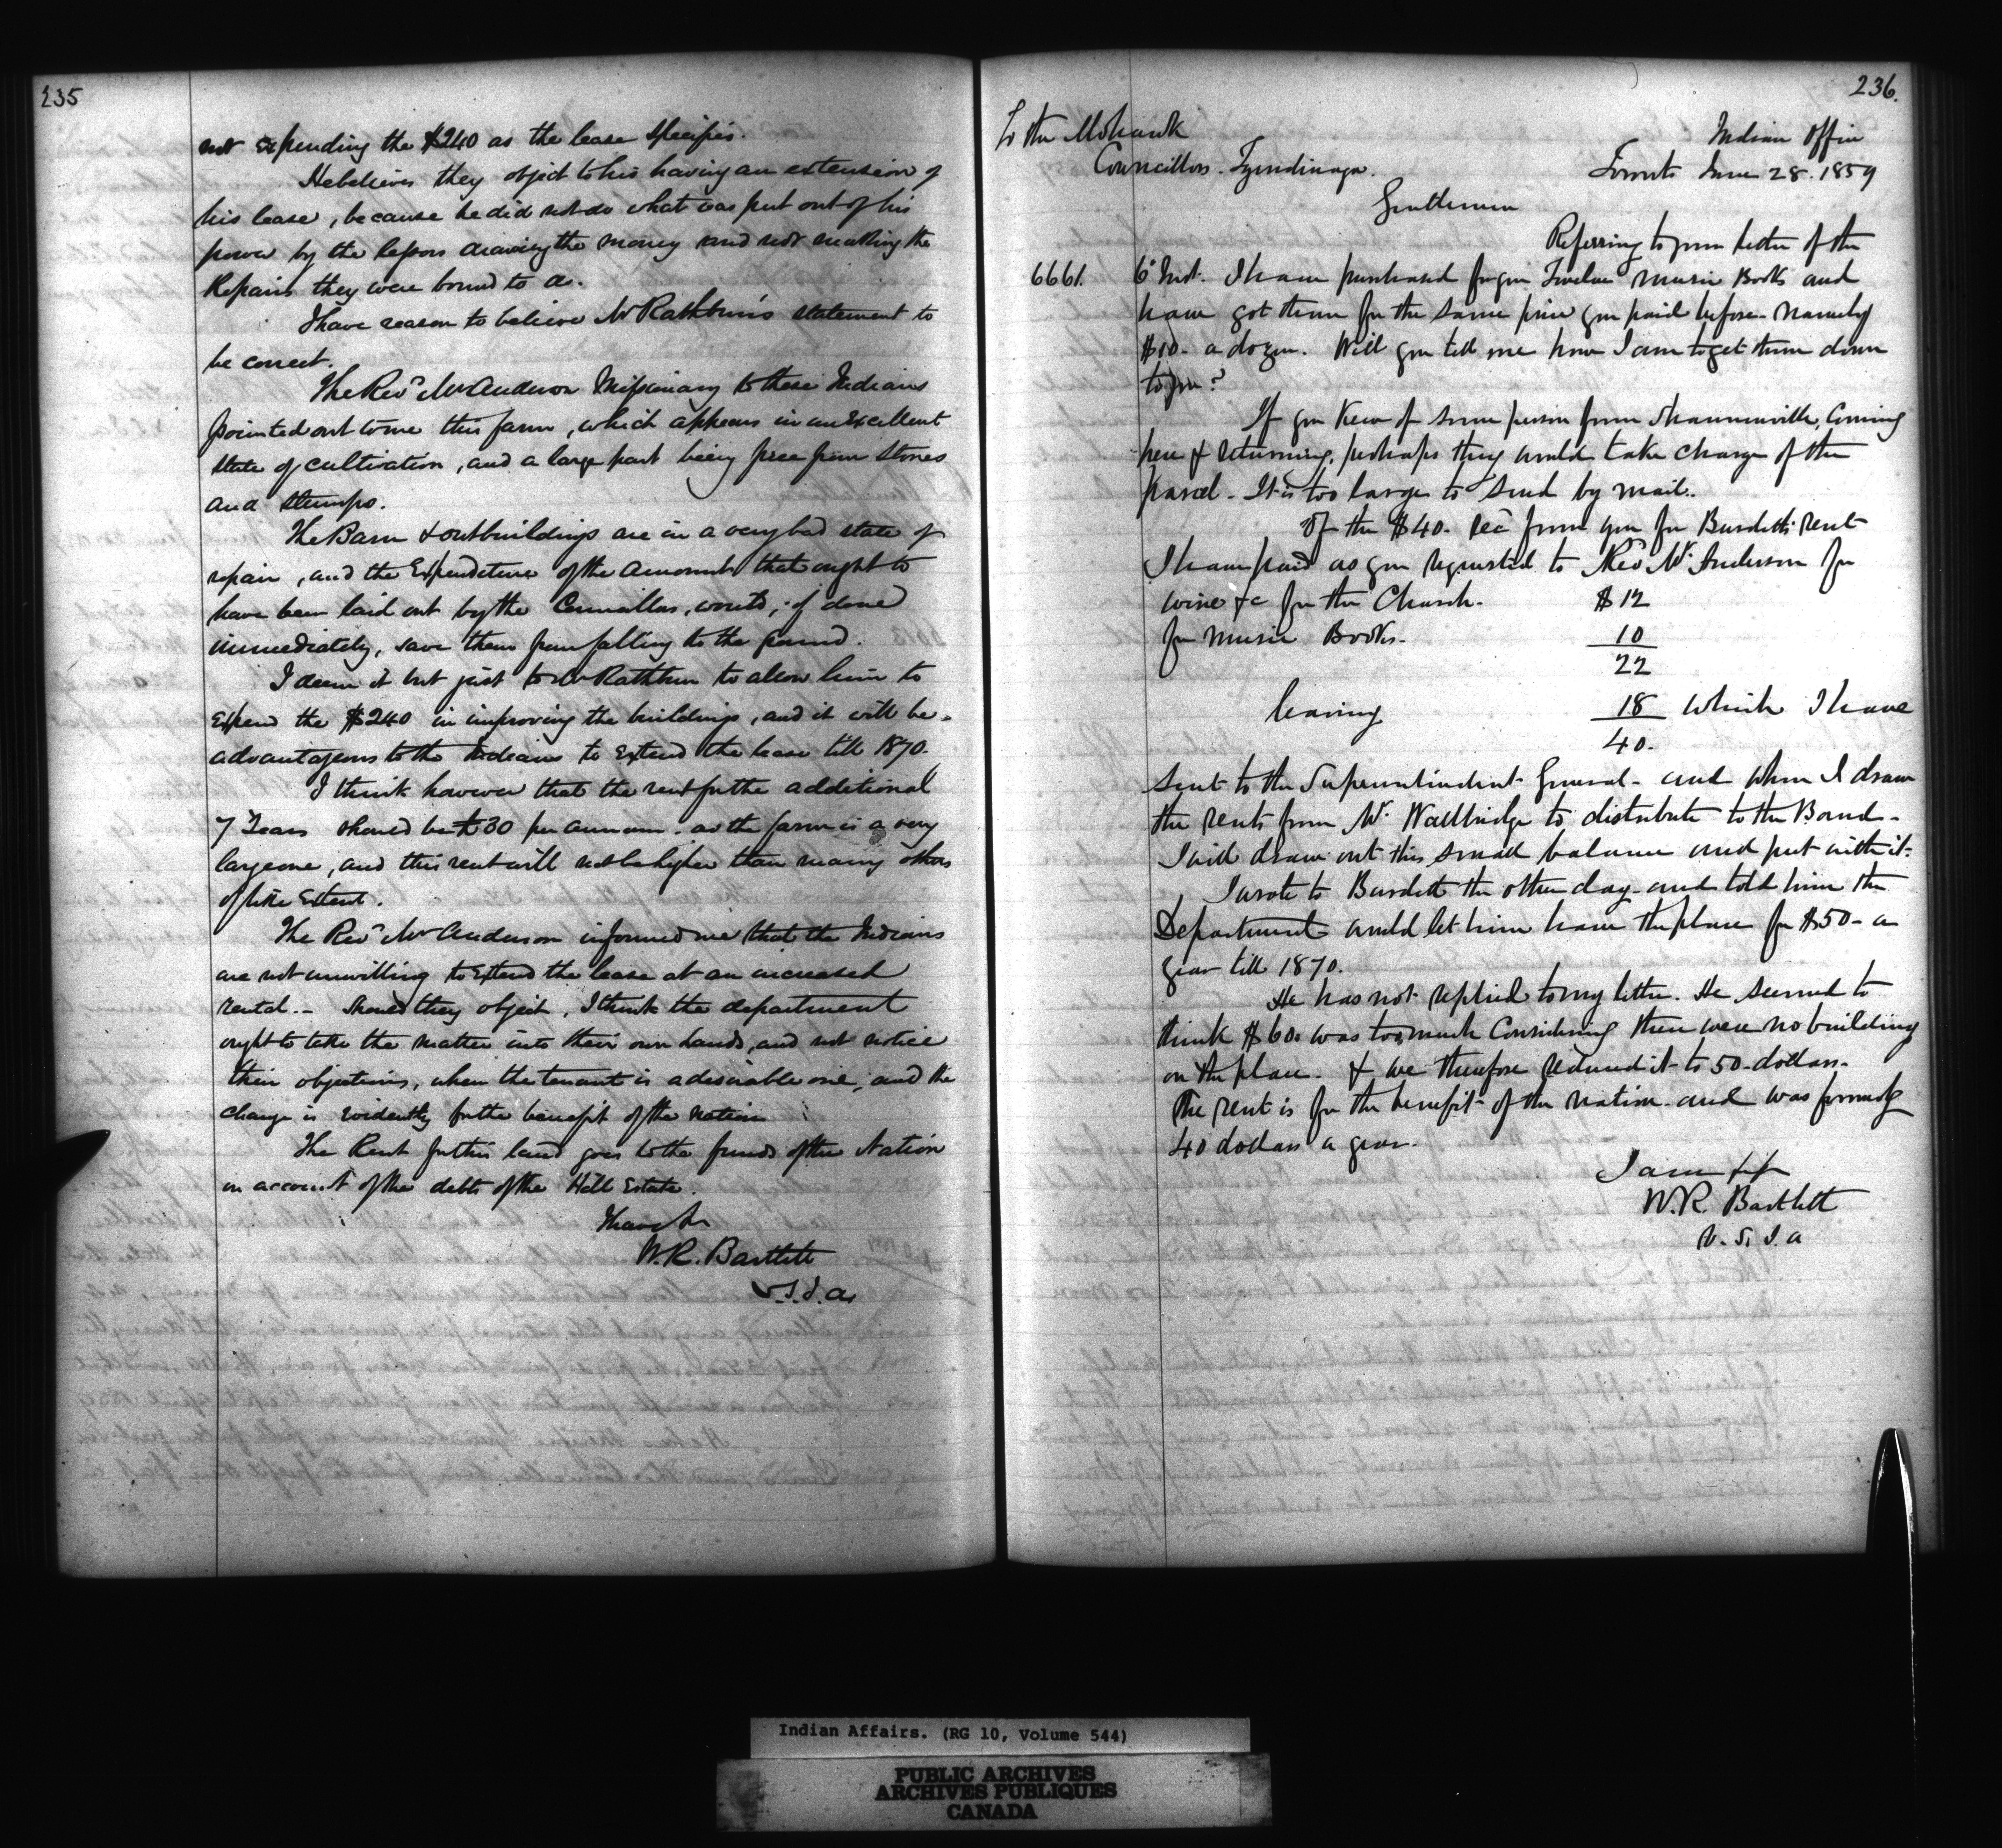 235
not expending the $240 as the lease specifies.
He believes they object to his having an extension of
his lease, because he did not do what was put out of his
power by the lessors drawing the money and not making the
Repairs they were bound to do.
I have reason to believe Mr Rathbun's statement to
be correct.
The Revd Mr Anderson Missionary to these Indians
pointed out to me this farm, which appears in an excellent
state of cultivation, and a large part being free from stones
and stumps.
The Barn & outbuildings are in a very bad state of
repair, and the Expenditure of the amount that ought to
have been laid out by the Councillors, would, if done
immediately, save them from falling to the ground.
I deem it but just to Mr Rathbun to allow him to
expend the $240 in improving the buildings, and it will be
advantageous to the Indians to Extend the lease till 1870.
I think however that the rent for the additional
7 Years should be £30 per annum. as the farm is a very
large one, and this rent will not be higher than many others
of like Extent.
The Revd Mr Anderson informed me that the Indians
are not unwilling to Extend the lease at an increased
rental.- Should they object, I think the department
ought to take the matter into their own hands, and not notice
their objections, when the tenant is a desirable one, and the
change is evidently for the benefit of the nation
The Rent for this land goes to the funds of the Nation
on account of the debts of the Hill Estate.
I have &c
W.R. Bartlett
V.S.I.A.
236.
To the Mohawk
Councillors. Tyendinaga.
Indian Office
Toronto June 28. 1859
Gentlemen
Referring to your letter of the
6661. 6th Inst. I have purchased for you Twelve music Books and
have got them for the same price you paid before - namely
$10- a dozen. Will you tell me how I am to get them down
to you?
If you know of some person from Shannonville, Coming
here & returning, perhaps they would take charge of the
parcel - It is too large to send by mail.
Of the $40. recd from you for Burdett's rent
I have paid as you requested to Revd Mr. Anderson for
wine &c for the Church. $12
for music Books. 10
22
leaving 18 which I have
40.
sent to the Superintendent General - and when I draw
the rents from Mr. Wallbridge to distribute to the Band -
I will draw out this small balance and put with it.
I wrote to Burdett the other day and told him the
Department would let him have the place for $50- a
year till 1870.
He has not replied to my letter. He seemed to
think $60. was too much Considering there were no building
on the place. & we therefore reduced it to 50 dollars.
The rent is for the benefit of the nation and was formerly
40 dollars a year.
I am &c
W.R. Bartlett
V.S.I.A
Indian Affairs. (RG 10, Volume 544)
PUBLIC ARCHIVES
ARCHIVES PUBLIQUES
CANADA